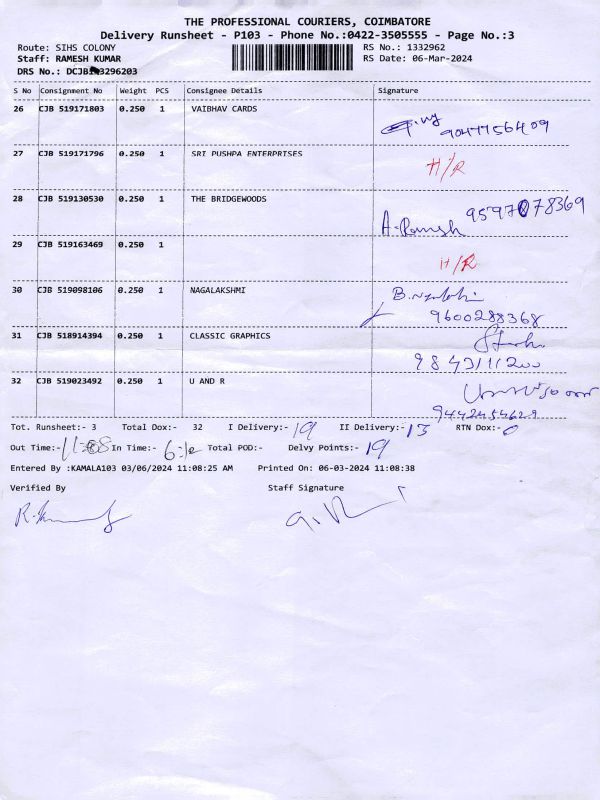 THE PROFESSIONAL COURIERS, COIMBATORE
Delivery Runsheet - P103 - Phone No.:0422-3505555 - Page No.:3
Route: SIHS COLONY RS No.: 1332962
Staff: RAMESH KUMAR RS Date: 06-Mar-2024
DRS No.: DCJB13296203
S No Consignment No Weight PCS Consignee Details Signature
26 CJB 519171803 0.250 1 VAIBHAV CARDS
9047756409
27 CJB 519171796 0.250 1 SRI PUSHPA ENTERPRISES
H/R
28 CJB 519130530 0.250 1 THE BRIDGEWOODS
9597078369
A-Ramesh
29 CJB 519163469 0.250 1
H/R
30 CJB 519098106 0.250 1 NAGALAKSHMI
9600288368
31 CJB 518914394 0.250 1 CLASSIC GRAPHICS
9843111200
32 CJB 519023492 0.250 1 U AND R
9442454629
Tot. Runsheet:- 3 Total Dox:- 32 I Delivery:- 19 II Delivery:- 13 RTN Dox:- 0
Out Time:- 11:08 In Time:- Total POD:- Delvy Points:- 19
Entered By :KAMALA103 03/06/2024 11:08:25 AM Printed On: 06-03-2024 11:08:38
Verified By Staff Signature